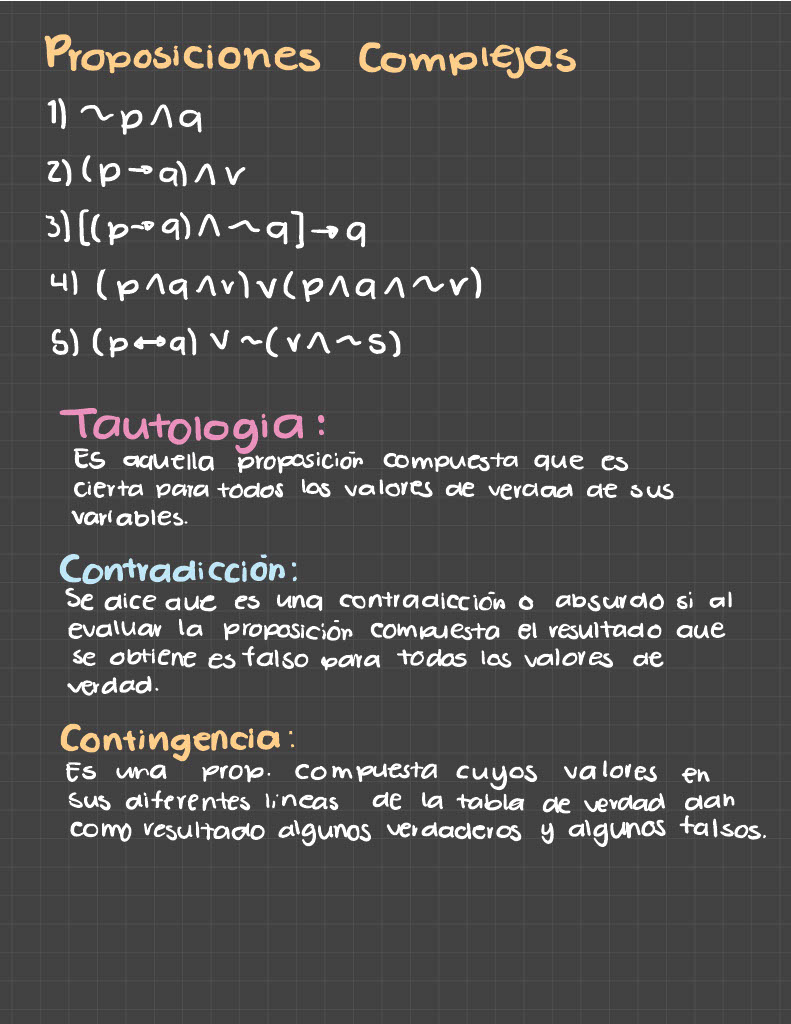 Proposiciones Complejas
1) ~p∧q
2) (p→q)∧r
3) [(p→q)∧~q]→q
4) (p∧q∧r)∨(p∧q∧~r)
5) (p↔q) ∨ ~(r∧~s)
Tautologia:
Es aquella proposición compuesta que es
cierta para todos los valores de verdad de sus
variables.
Contradicción:
Se dice que es una contradicción o absurdo si al
evaluar la proposición compuesta el resultado que
se obtiene es falso para todos los valores de
verdad.
Contingencia:
Es una prop. compuesta cuyos valores en
sus diferentes lineas de la tabla de verdad dan
como resultado algunos verdaderos y algunos falsos.